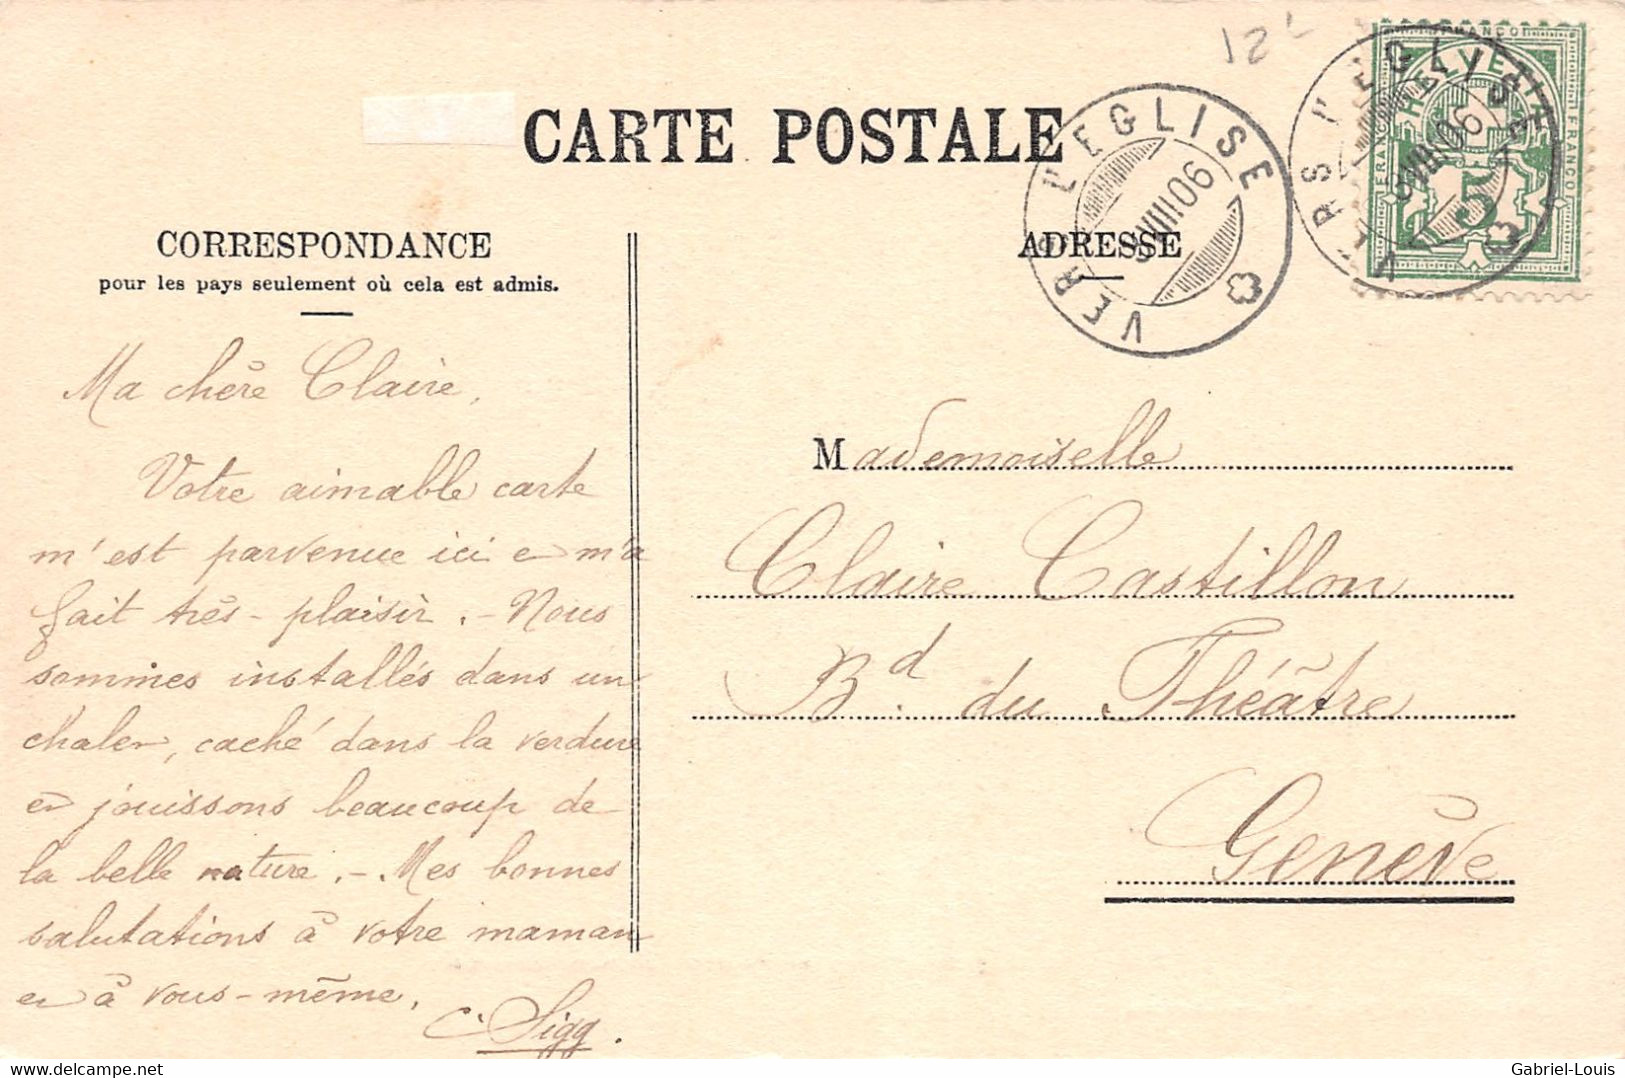 12
CARTE POSTALE
VERS L'EGLISE
VIII 06
VERS L'EGLISE
VIII 06
FRANCO
HELVETIA
FRANCO
FRANCO
5
CORRESPONDANCE
pour les pays seulement où cela est admis.
ADRESSE
Ma chère Claire,
Votre aimable carte
m'est parvenue ici et m'a
fait très-plaisir.- Nous
sommes installés dans un
chalet, caché dans la verdure
et jouissons beaucoup de
la belle nature.- Mes bonnes
salutations à votre maman
et à vous-même.
C. Sigg.
Mademoiselle
Claire Castillon
Bd. du Théâtre
Genève
delcampe.net
Gabriel-Louis